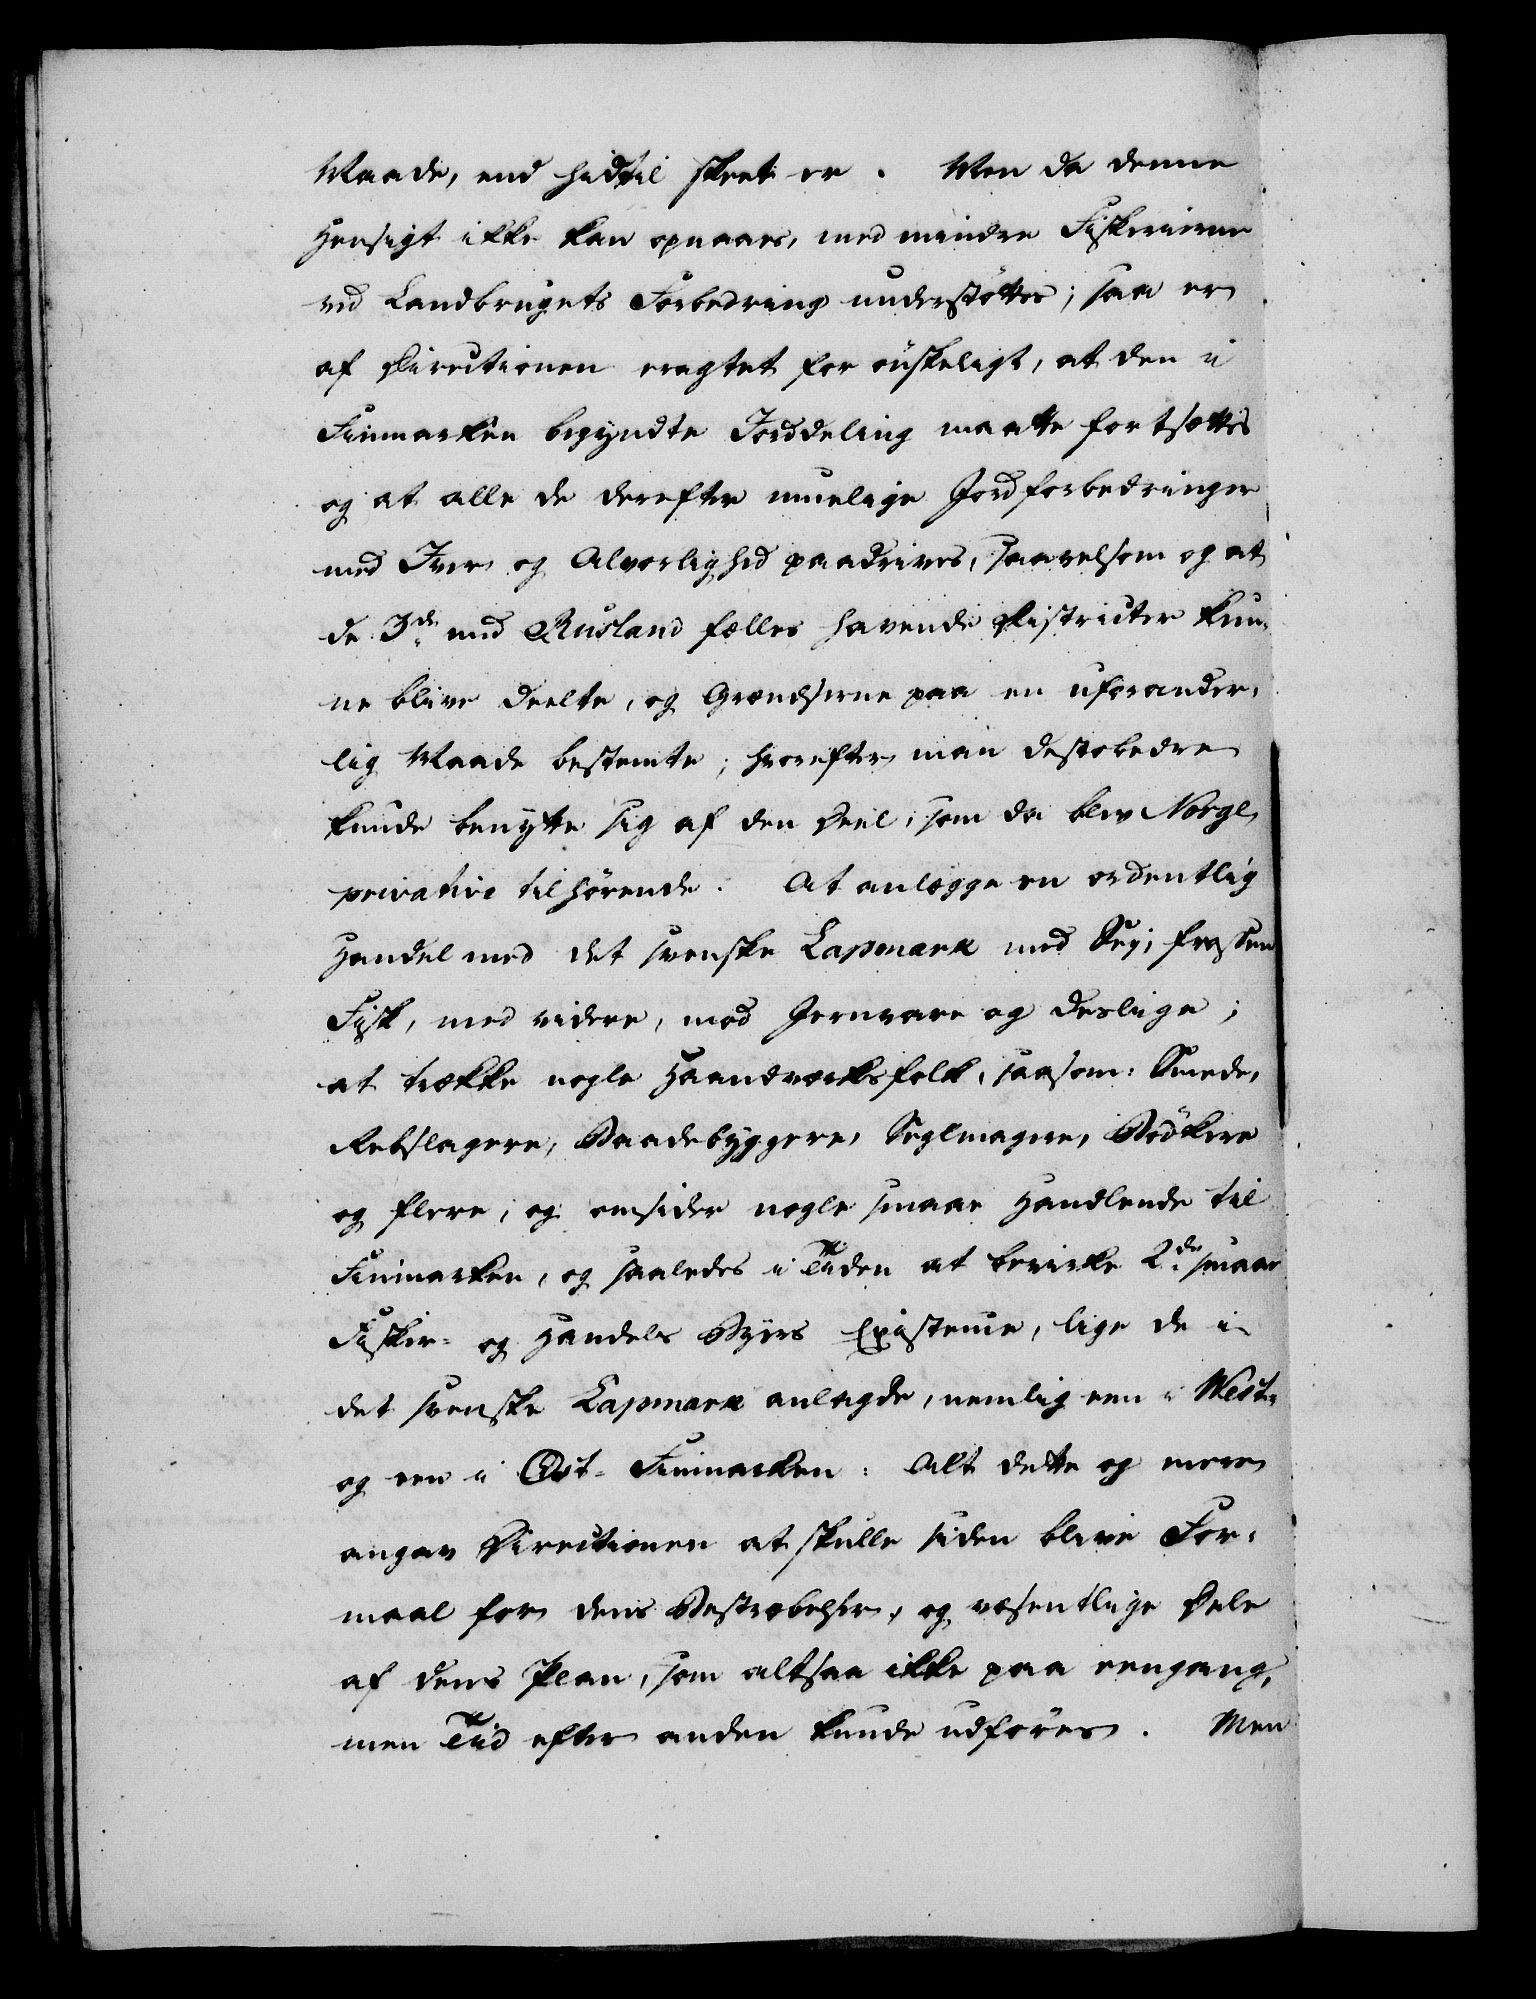 Maade, end hidtil skeet er. Men da denne
Hensigt ikke kan opnaaes, med mindre Fiskerierne
ved Landbrugets Forbedring understöttes; saa er
af Directionen eragtet for önskeligt, at den i
Finmarken begyndte Jorddeling maatte fortsættes
og at alle de derefter muelige Jordforbedringer
med Iver og Alvorlighed paadrives, saavelsom og at
de 3de med Rusland fælles havende Districter kun-
ne blive deelte, og Grændserne paa en uforander-
lig Maade bestemte; hvorefter man destobedre
kunde benytte sig af den Deel, som da blev Norge
privative tilhörende. At anlægge en ordentlig
Handel med det svenske Lapmark med Sey, frossen
Fisk, med videre, mod Jernvare og deslige;
at trække nogle Haandverksfolk, saasom: Smede,
Rebslagere, Baadebyggere, Seglmagere, Bödkere
og flere, og omsider nogle smaae Handlende til
Finmarken, og saaledes i Tiden at bevirke 2de smaae
Fisker- og Handels Byers Existence, lige de i
det svenske Lapmark anlagde, nemlig een i West-
og een i Ost-Finmarken: Alt dette og mere
angav Directionen at skulle siden blive For-
maal for dens Bestræbelser, og væsentlige Dele
af dens Plan, som altsaa ikke paa eengang,
men Tiid efter anden kunde udföres. Men